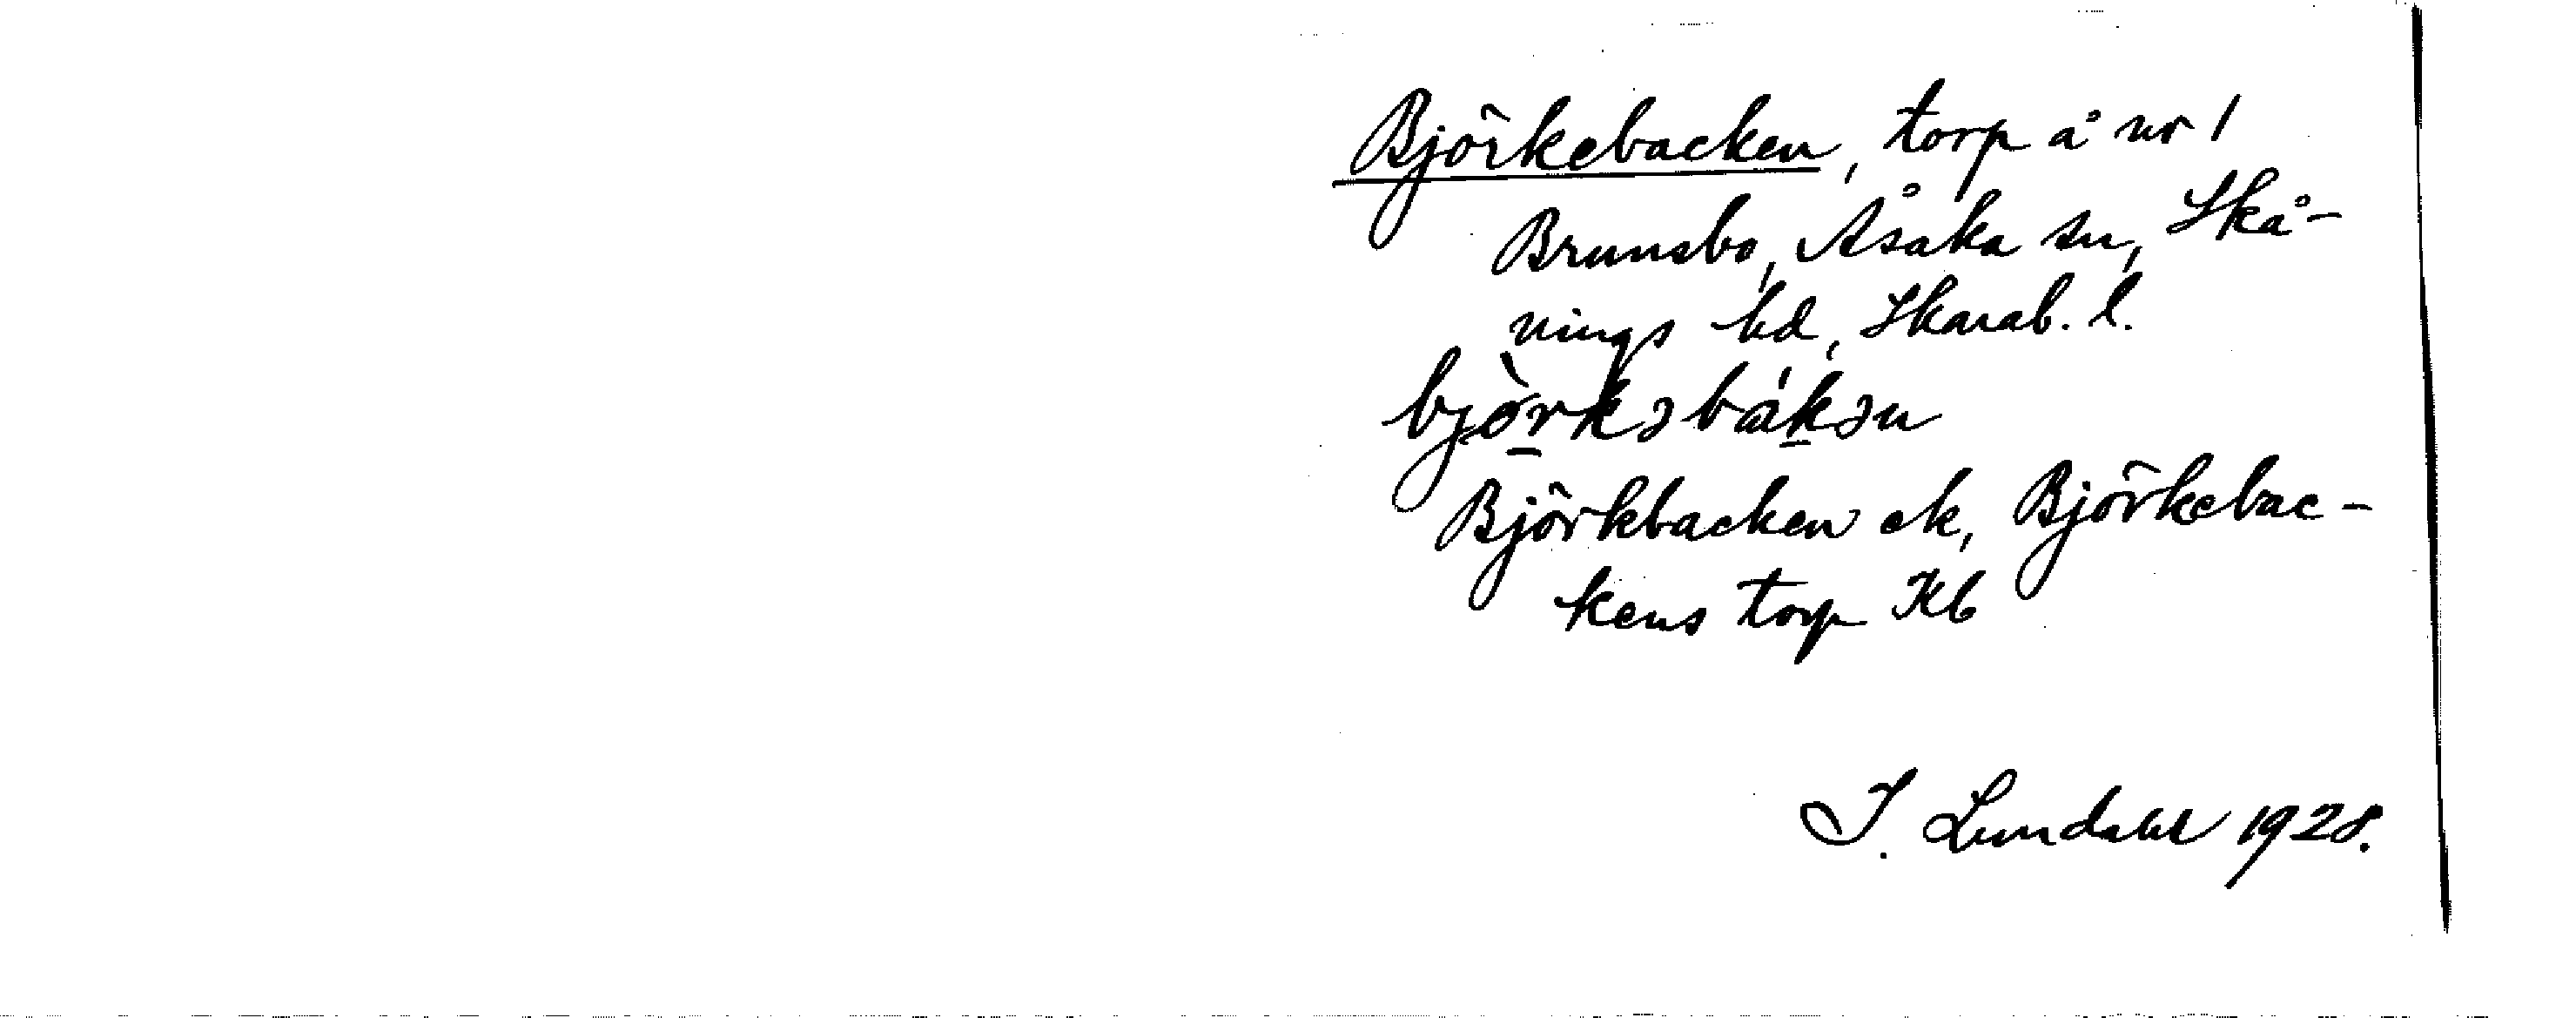 Björkebacken, torp å nr 1
Brunsbo, Åsaka sn, Skå-
nings hd, Skarab. l.
bjò̱rkəbák̠ən
Björkbacken ek, Björkebac-
kens torp Kb
I. Lundahl 1928.